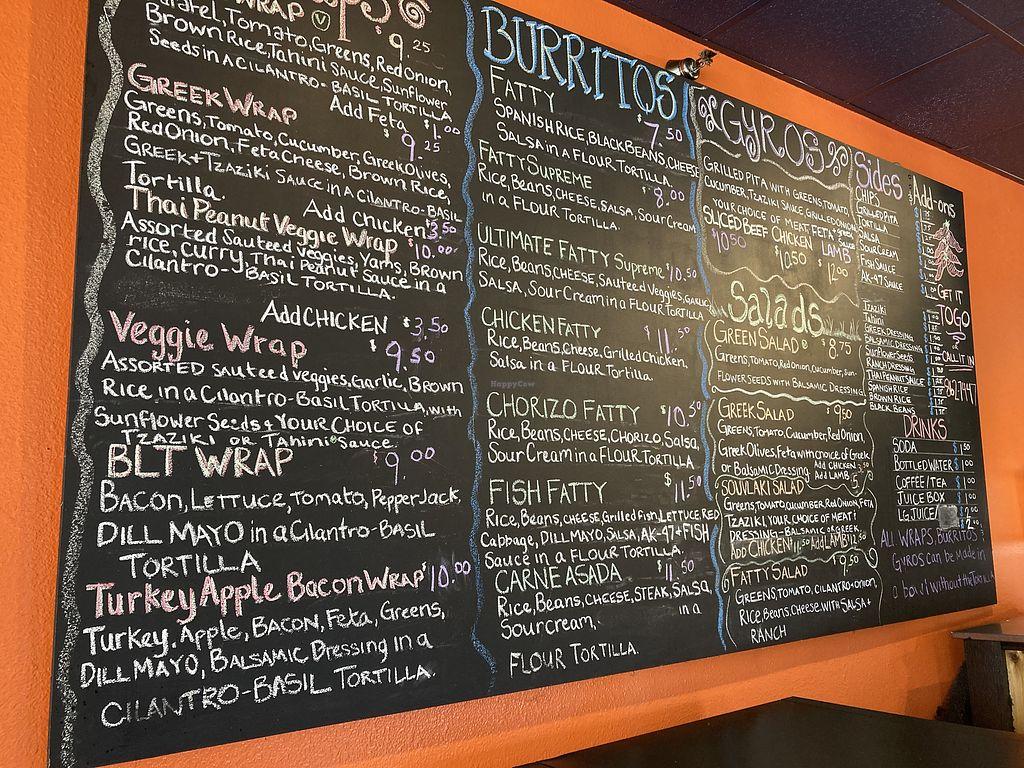 WRAP Ⓥ $9.25
Tomato, Greens, Red Onion,
Brown Rice, Tahini Sauce, Sunflower
Seeds in a CILANTRO-BASIL TORTILLA
Add Feta $1.00
GREEK WRAP $9.25
Greens, Tomato, Cucumber, Greek Olives,
Red Onion, Feta Cheese, Brown Rice,
GREEK + Tzaziki Sauce in a Cilantro-BASIL
Tortilla. Add Chicken $3.50
Thai Peanut Veggie Wrap $10.00
Assorted Sauteed Veggies, Yams, Brown
rice, Curry, Thai Peanut Sauce in a
Cilantro-BASIL TORTILLA.
Add CHICKEN $3.50
Veggie Wrap $9.50
ASSORTED Sauteed Veggies, Garlic, BROWN
Rice in a Cilantro-Basil TORTILLA, with
Sunflower Seeds + YOUR CHOICE OF
TZAZIKI OR Tahini Sauce
BLT WRAP $9.00
BACON, LETTUCE, TOMATO, PEPPERJACK,
DILL MAYO in a Cilantro-BASIL
TORTILLA
Turkey Apple Bacon WRAP $10.00
Turkey, Apple, BACON, Feta, Greens,
DILL MAYO, BALSAMIC Dressing in a
CILANTRO-BASIL TORTILLA.
BURRITOS
FATTY $7.50
SPANISH RICE, BLACK BEANS, CHEESE
SALSA in a FLOUR TORTILLA.
FATTY SUPREME $8.00
Rice, Beans, CHEESE, SALSA, SOUR Cream
in a FLOUR TORTILLA.
ULTIMATE FATTY Supreme $10.50
Rice, Beans, CHEESE, Sauteed Veggies, GARLIC,
SALSA, SOUR CREAM in a FLOUR TORTILLA
CHICKEN FATTY $11.50
Rice, Beans, Cheese, Grilled Chicken,
Salsa in a FLOUR Tortilla.
CHORIZO FATTY $10.50
Rice, Beans, CHEESE, CHORIZO, Salsa,
Sour Cream in a FLOUR TORTILLA
FISH FATTY $11.50
Rice, Beans, CHEESE, Grilled fish, LETTUCE, RED
Cabbage, DILL MAYO, SALSA, AK-47 + FISH
Sauce in a FLOUR TORTILLA.
CARNE ASADA $11.50
Rice, Beans, CHEESE, STEAK, SALSA,
Sour cream, in a
FLOUR TORTILLA.
GYROS
GRILLED PITA WITH GREENS, TOMATO,
CUCUMBER, TZAZIKI SAUCE, GRILLED ONION,
YOUR CHOICE OF MEAT, FETA + Greek Sauce
SLICED BEEF CHICKEN LAMB
$10.50 $10.50 $12.00
Salads
GREEN SALAD $8.75
Greens, TOMATO, Red Onion, Cucumber, Sun-
FLOWER SEEDS WITH BALSAMIC DRESSING
GREEK SALAD $9.50
GREENS, TOMATO, Cucumber, Red Onion,
Greek Olives, Feta with choice of Greek
or Balsamic Dressing. Add CHICKEN 3.50
Add LAMB
SOUVLAKI SALAD
Greens, tomato, cucumber, RED ONION, FETA
TZAZIKI, YOUR CHOICE OF MEAT!
DRESSING - BALSAMIC OR GREEK
Add CHICKEN 11.50 Add LAMB 12.50
FATTY SALAD $9.50
GREENS, TOMATO, CILANTRO + ONION,
RICE, Beans, Cheese WITH SALSA +
RANCH
Sides
CHIPS
GRILLED PITA
TORTILLA
SALSA
SOUR CREAM
FISH SAUCE
AK-47 SAUCE
Add-ons
TZAZIKI
Tahini
GREEK DRESSING
BALSAMIC DRESSING
Sunflower Seeds
RANCH DRESSING
THAI PEANUT SAUCE
SPANISH RICE
BROWN RICE
BLACK BEANS
GET IT
TO GO
?
CALL IT IN
DRINKS
SODA $1.50
BOTTLED WATER $1.00
COFFEE/TEA $1.00
JUICE BOX $1.00
LG. JUICE/
ALL WRAPS, BURRITOS +
GYROS can be made in
a bowl without the TORTILLA
HappyCow